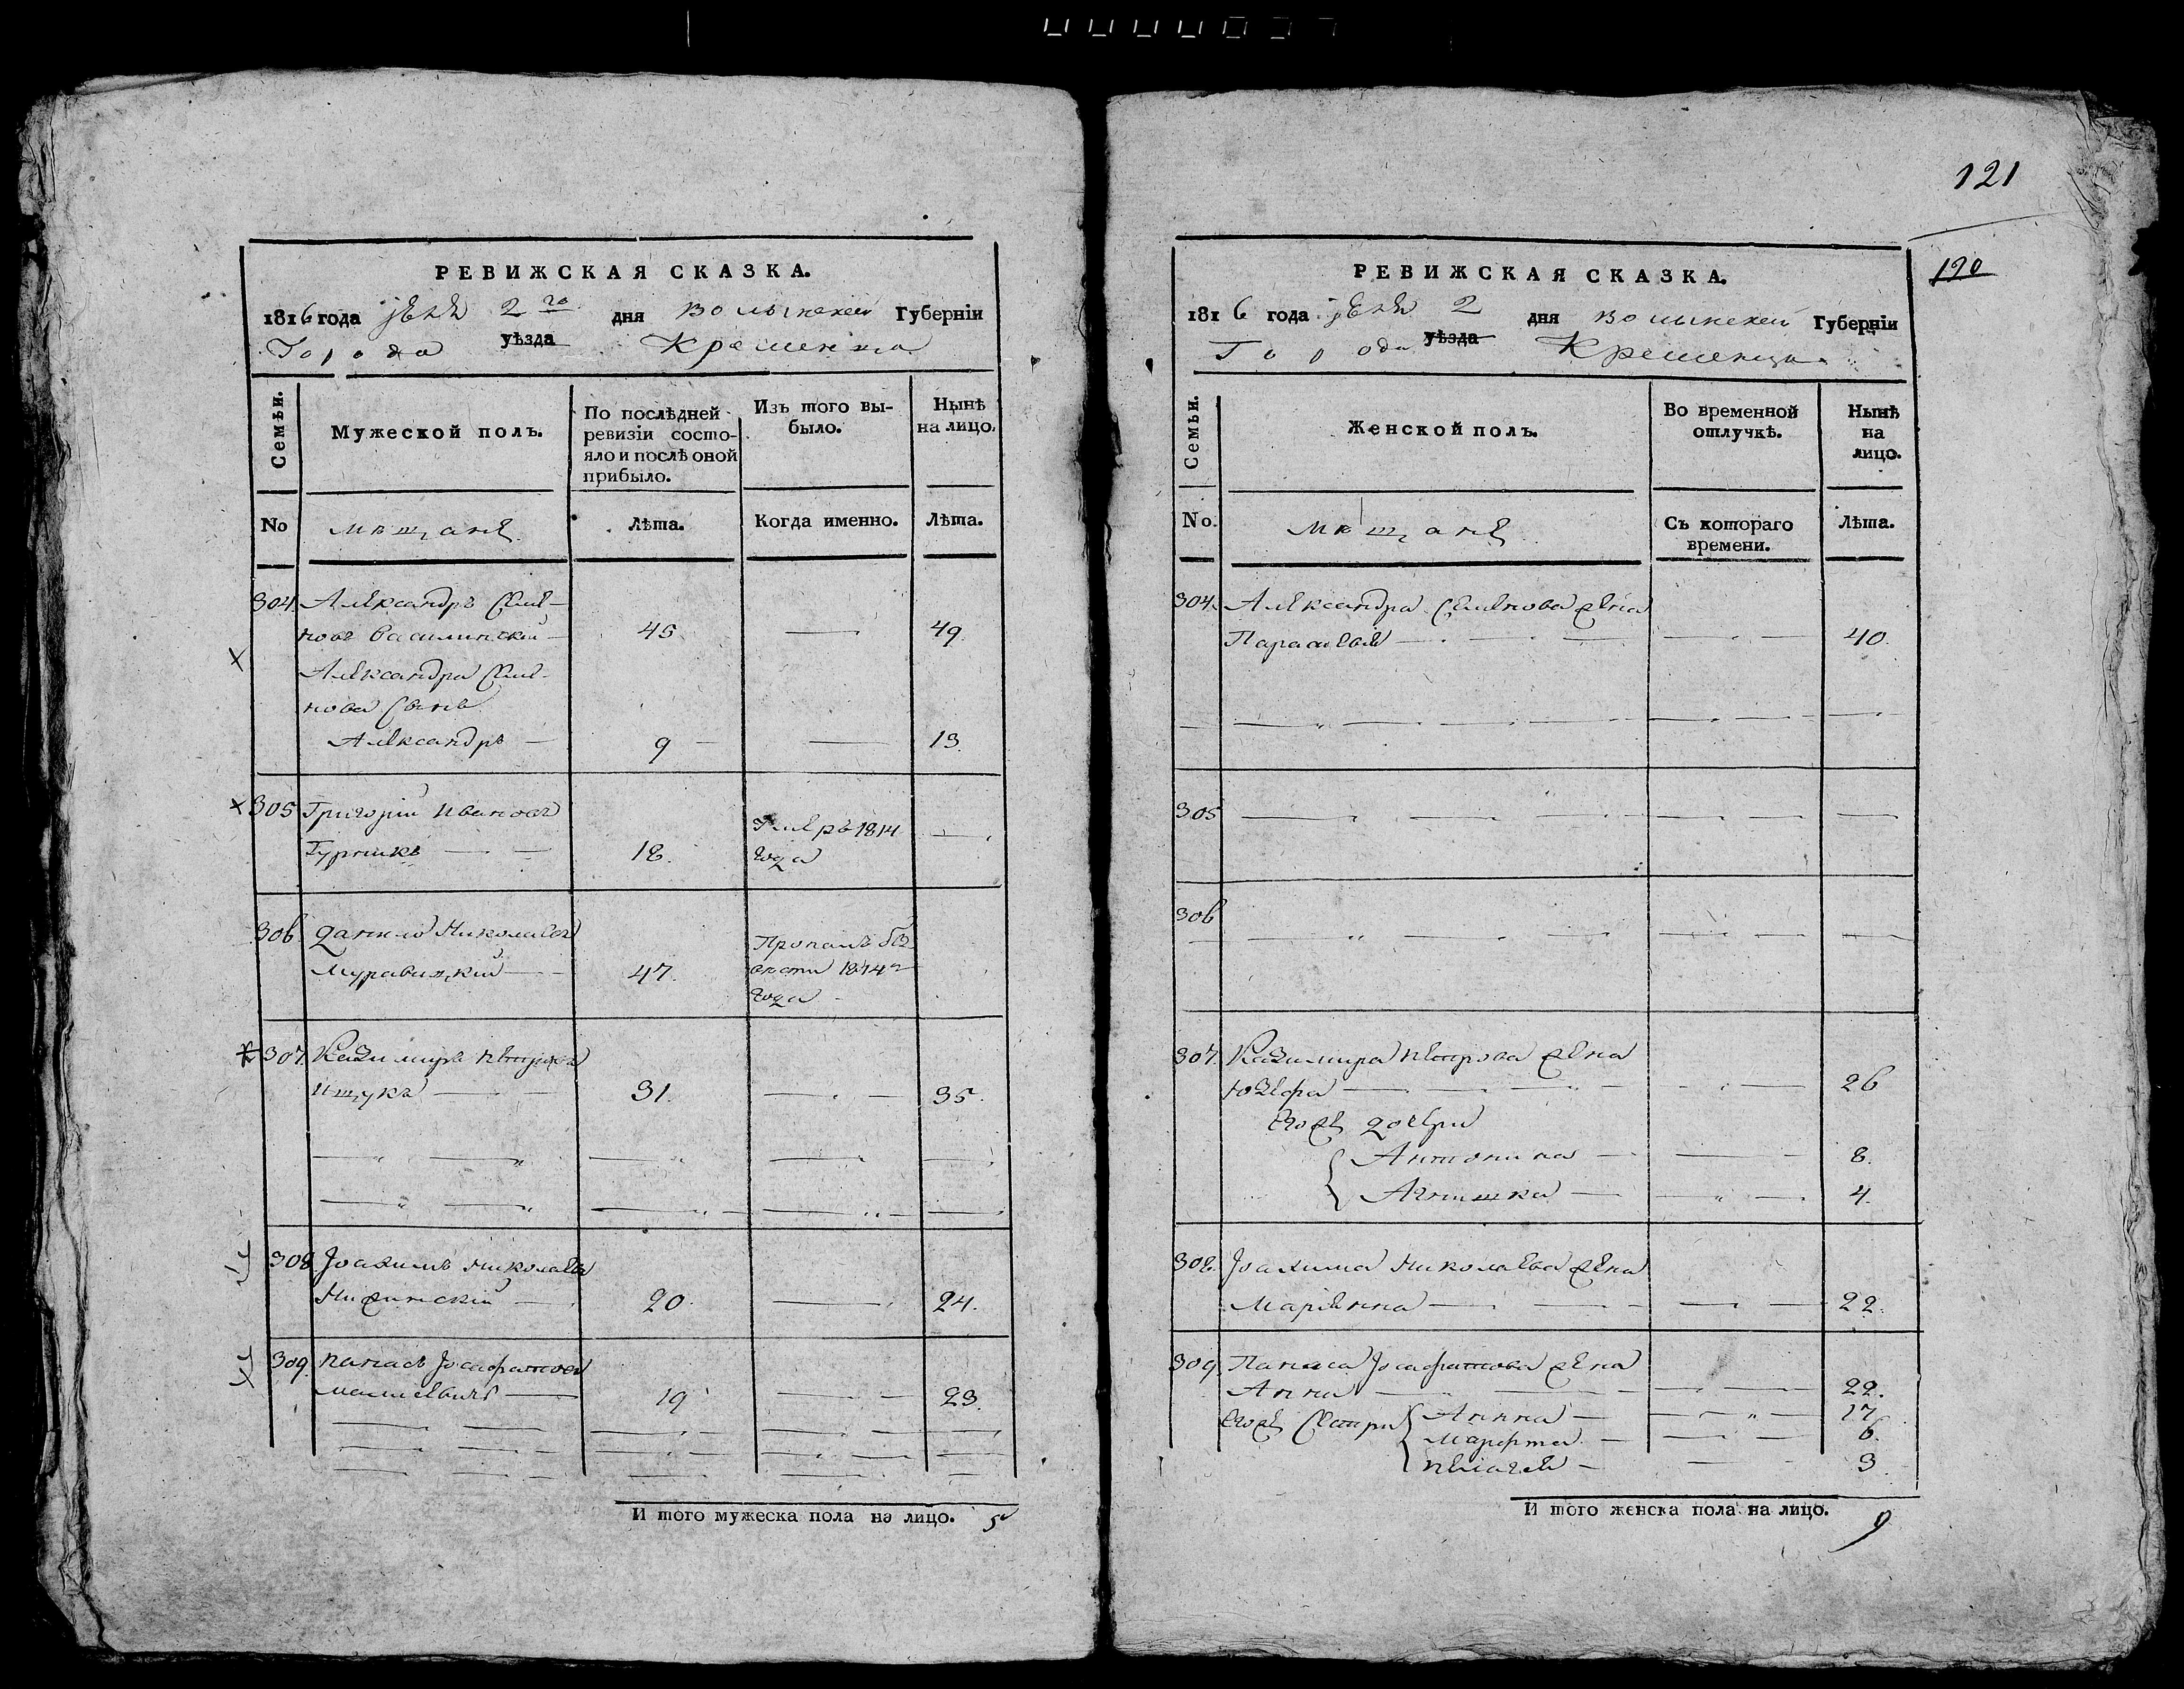 РЕВИЖСКАЯ СКАЗКА.
1816 года 2го дня Волынской Губерніи
Города уѣзда Кременца
Семьи.
Мужеской полъ.
По послѣдней ревизіи состо-
яло и послѣ оной
прибыло.
Изъ того вы-
было.
Нынѣ
на лицо.
No
мѣщане
Лѣта.
Когда именно.
Лѣта.
304. Александръ Семе-
новъ 45 — 49
Александра Семе-
нова Сынъ
Александръ — 9 — 13.
305 Григорій Ивановъ
Гурникъ — 18. Умеръ 1814
года
306 Данило Николаевъ
Муравицкій — 47. Пропалъ без
вѣсти 1814го
года
307. Казимиръ Петровъ
Ищукъ — 31. — 35.
308 Іоахимъ Николаевъ
Нижинскій — 20. — 24.
309. Панасъ Іосафатовъ
19 — 23.
И того мужеска пола на лицо. 5
121
190
РЕВИЖСКАЯ СКАЗКА.
1816 года 2 дня Волынской Губерніи
Города уѣзда Кременца
Семьи.
Женской полъ.
Во временной
отлучкѣ.
Нынѣ
на
лицо.
No.
мѣщане
Съ котораго
времени.
Лѣта.
304. Александра Семенова жена
Парасковья — 40.
305
306
307. Казимира Петрова жена
Юзефа — 26
Егожъ дочери
Антонина — 8.
Агнишка — 4.
308. Іоахима Николаева жена
Маріянна — 22.
309. Панаса Іосафатова жена
Анна — 22.
Егожъ Сестри Анна — 17
Марфта — 6.
Пелагея — 3
И того женска пола на лицо. 9